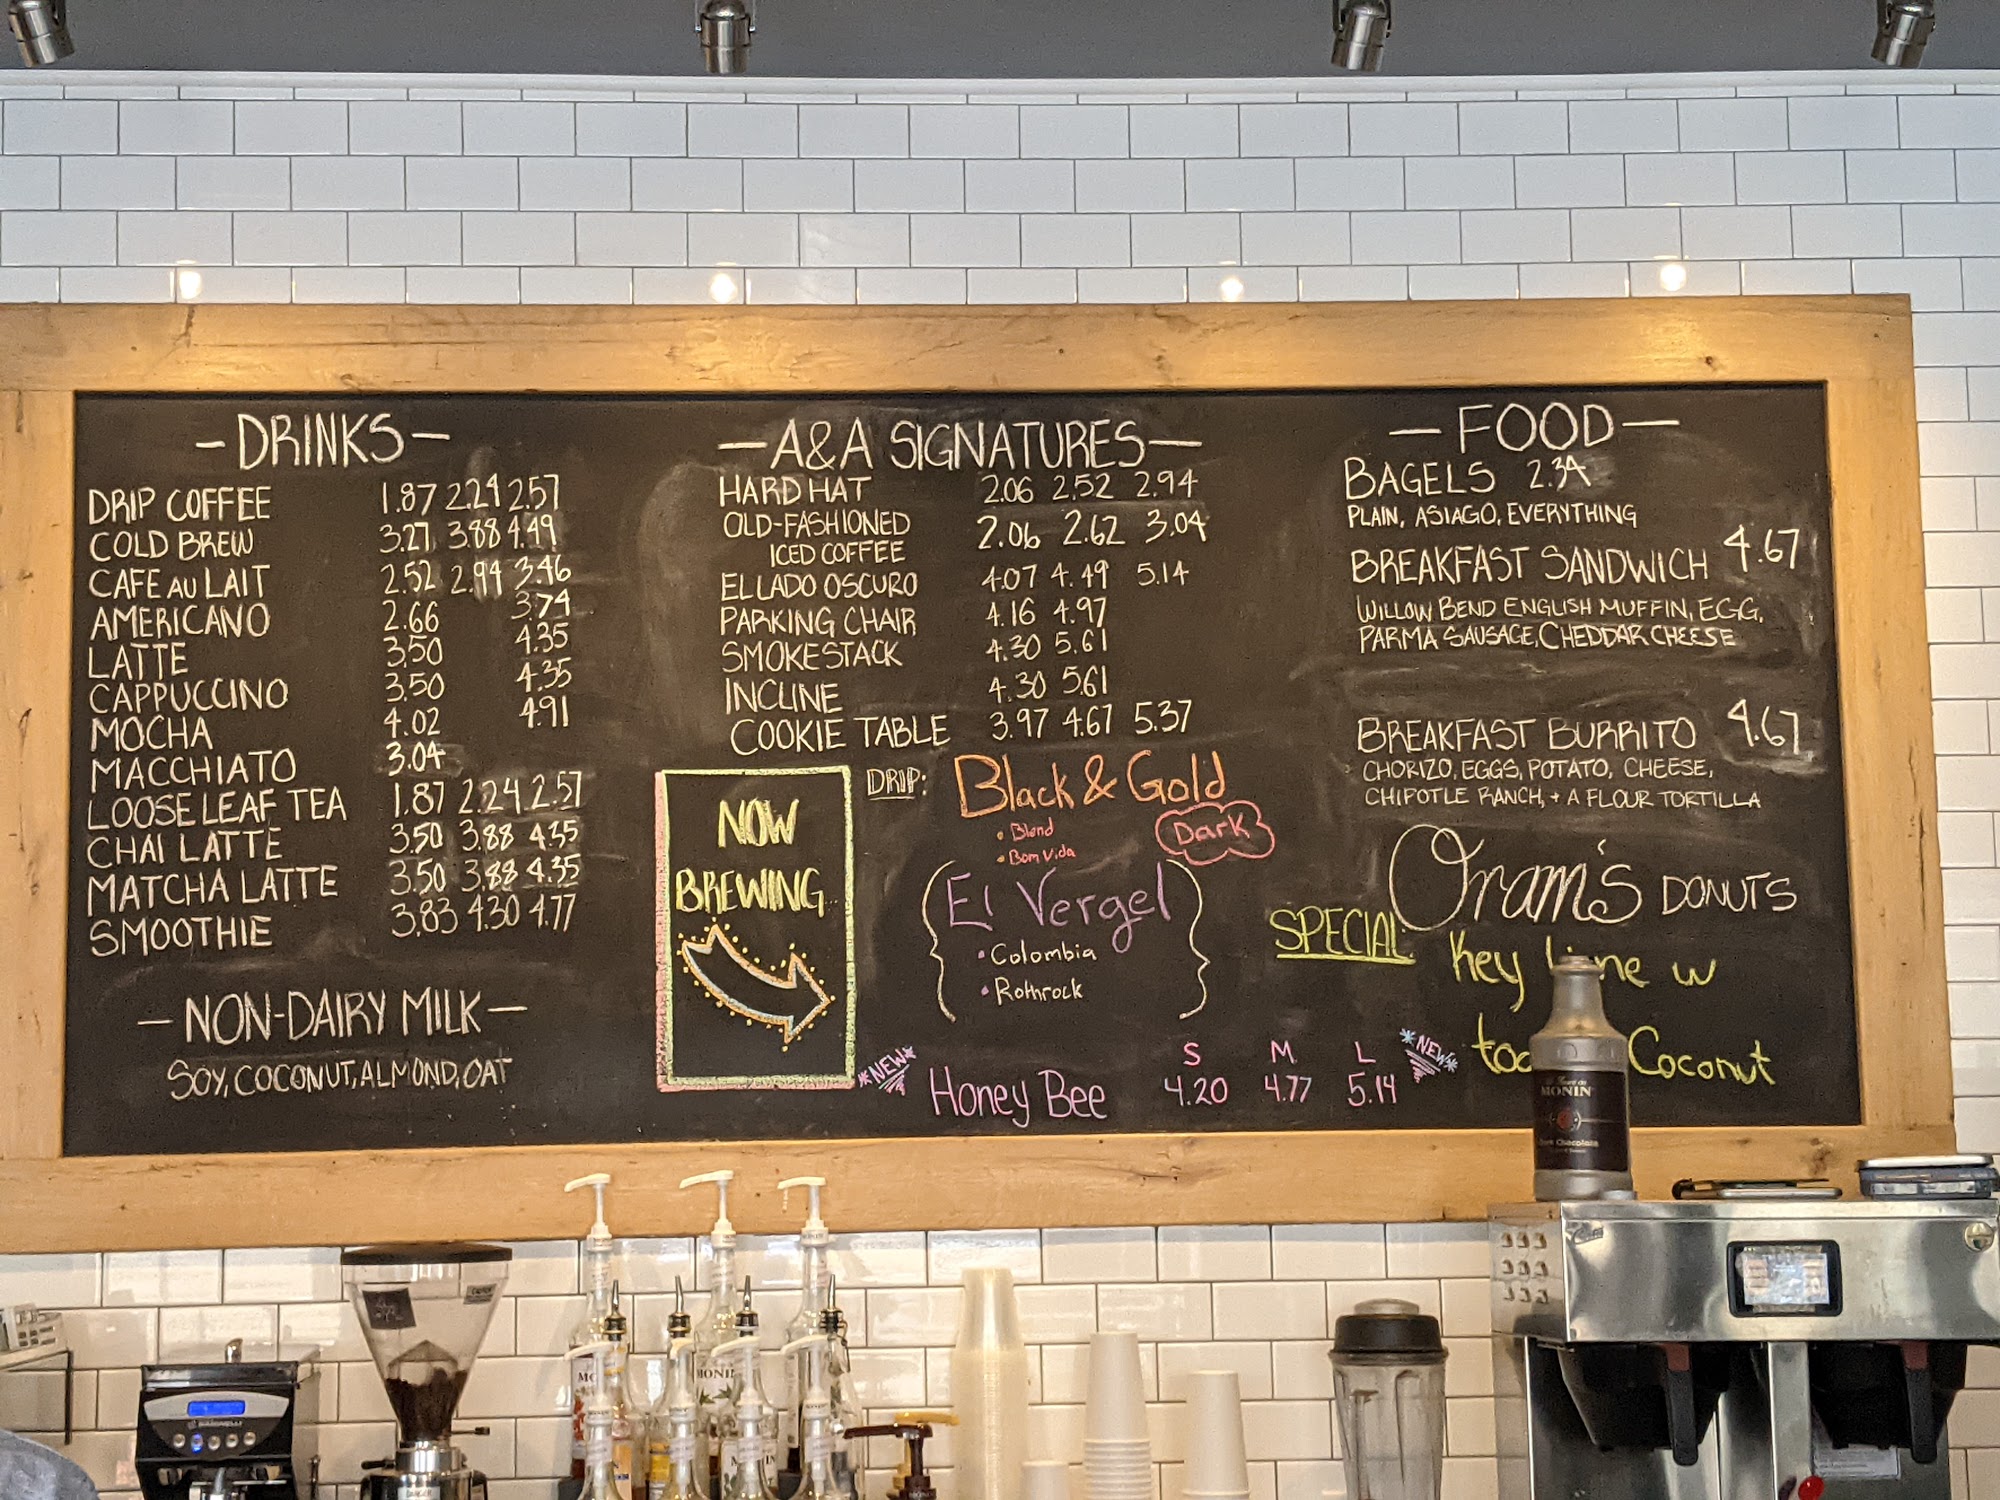 -DRINKS-
DRIP COFFEE 1.87 2.24 2.57
COLD BREW 3.27 3.88 4.49
CAFE AU LAIT 2.52 2.94 3.46
AMERICANO 2.66 3.74
LATTE 3.50 4.35
CAPPUCCINO 3.50 4.35
MOCHA 4.02 4.91
MACCHIATO 3.04
LOOSE LEAF TEA 1.87 2.24 2.57
CHAI LATTE 3.50 3.88 4.35
MATCHA LATTE 3.50 3.88 4.35
SMOOTHIE 3.83 4.30 4.77
-NON-DAIRY MILK-
SOY, COCONUT, ALMOND, OAT
-A&A SIGNATURES-
HARD HAT 2.06 2.52 2.94
OLD-FASHIONED
ICED COFFEE 2.06 2.62 3.04
EL LADO OSCURO 4.07 4.49 5.14
PARKING CHAIR 4.16 4.97
SMOKESTACK 4.30 5.61
INCLINE 4.30 5.61
COOKIE TABLE 3.97 4.67 5.37
NOW
BREWING
DRIP: Black & Gold
• Blend
• Bom Vida
Dark
El Vergel
• Colombia
• Rothrock
S M L
NEW Honey Bee 4.20 4.77 5.14 NEW
-FOOD-
BAGELS 2.34
PLAIN, ASIAGO, EVERYTHING
BREAKFAST SANDWICH 4.67
WILLOW BEND ENGLISH MUFFIN, EGG,
PARMA SAUSAGE, CHEDDAR CHEESE
BREAKFAST BURRITO 4.67
CHORIZO, EGGS, POTATO, CHEESE,
CHIPOTLE RANCH, + A FLOUR TORTILLA
Oram's DONUTS
SPECIAL: Key w
Coconut
MONIN
Dark Chocolate
MONIN